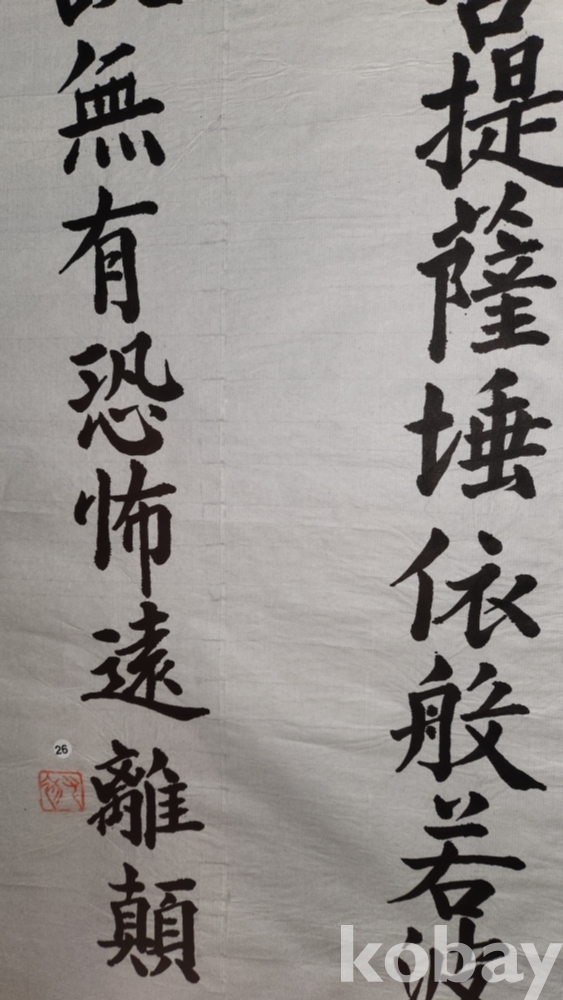 提薩埵依般若波
無有恐怖遠離顛
26
kobay